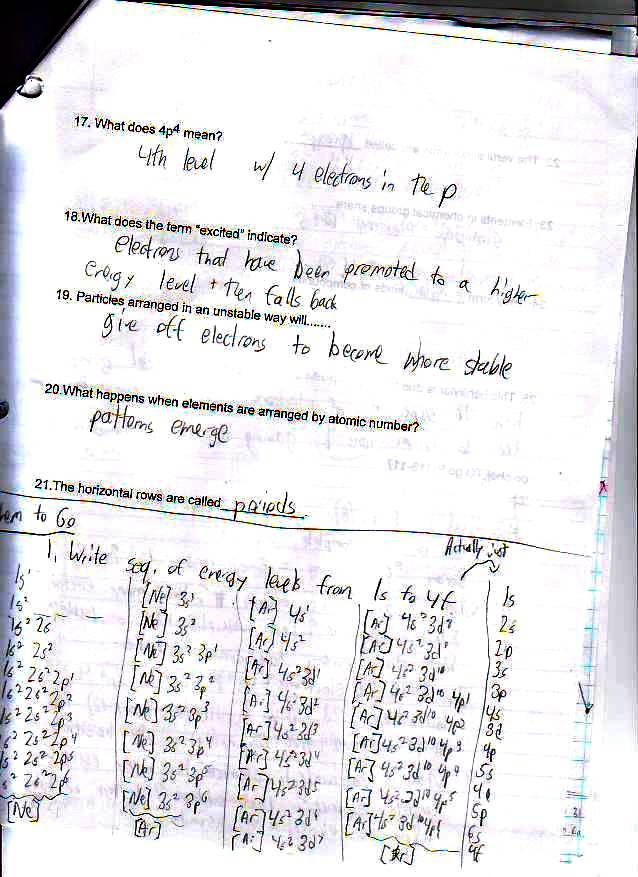 17. What does 4p⁴ mean?
4th level w/ 4 electrons in the p
18.What does the term "excited" indicate?
electrons that have been promoted to a higher
energy level + then falls back
19. Particles arranged in an unstable way will.......
give off electrons to become more stable
20.What happens when elements are arranged by atomic number?
patterns emerge
21.The horizontal rows are called periods.
to Go
Actually just
1. Write seq. of energy levels from 1s to 4f
1s¹
1s²
1s² 2s
1s² 2s²
1s² 2s² 2p¹
1s² 2s² 2p²
1s² 2s² 2p³
1s² 2s² 2p⁴
1s² 2s² 2p⁵
1s² 2s² 2p⁶
[Ne]
[Ne] 3s¹
[Ne] 3s²
[Ne] 3s² 3p¹
[Ne] 3s² 3p²
[Ne] 3s² 3p³
[Ne] 3s² 3p⁴
[Ne] 3s² 3p⁵
[Ne] 3s² 3p⁶
[Ar]
[Ar] 4s¹
[Ar] 4s²
[Ar] 4s² 3d¹
[Ar] 4s² 3d²
[Ar] 4s² 3d³
[Ar] 4s² 3d⁴
[Ar] 4s² 3d⁵
[Ar] 4s² 3d⁶
[Ar] 4s² 3d⁷
[Ar] 4s² 3d⁸
[Ar] 4s² 3d⁹
[Ar] 4s² 3d¹⁰
[Ar] 4s² 3d¹⁰ 4p¹
[Ar] 4s² 3d¹⁰ 4p²
[Ar] 4s² 3d¹⁰ 4p³
[Ar] 4s² 3d¹⁰ 4p⁴
[Ar] 4s² 3d¹⁰ 4p⁵
[Ar] 4s² 3d¹⁰ 4p⁶
[Kr]
1s
2s
2p
3s
3p
4s
3d
4p
5s
4d
5p
6s
4f